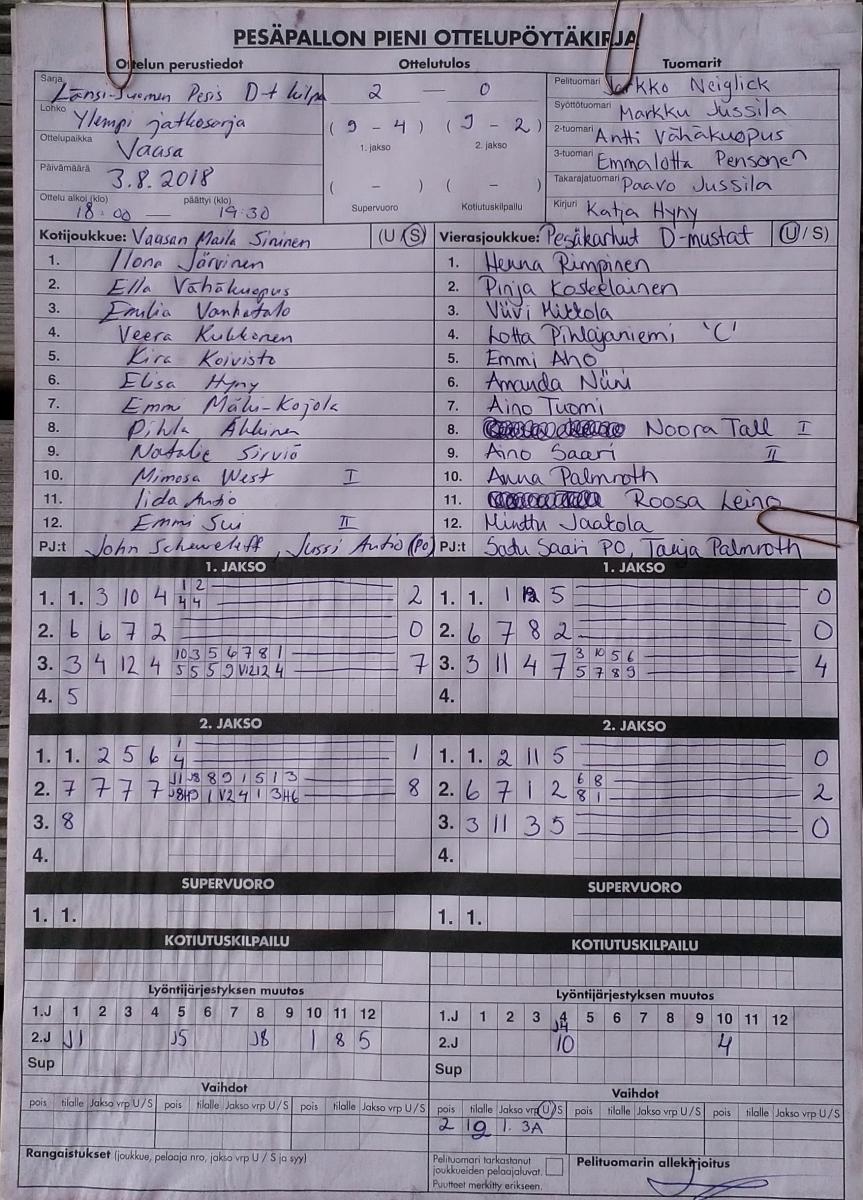 PESÄPALLON PIENI OTTELUPÖYTÄKIRJA
Ottelun perustiedot
Sarja Länsi-Suomen Pesis D-t kilpa
Lohko Ylempi jatkosarja
Ottelupaikka Vaasa
Päivämäärä 3.8.2018
Ottelu alkoi (klo) 18:00 — päättyi (klo) 19:30
Ottelutulos
2 — 0
(9 – 4) (9 – 2)
1. jakso 2. jakso
( – ) ( – )
Supervuoro Kotiutuskilpailu
Tuomarit
Pelituomari Jarkko Neiglick
Syöttötuomari Markku Jussila
2-tuomari Antti Vähäkuopus
3-tuomari Emmalotta Pensonen
Takarajatuomari Paavo Jussila
Kirjuri Katja Hyny
Kotijoukkue: Vaasan Maila Sininen (U S)
1. Ilona Järvinen
2. Ella Vähäkuopus
3. Emilia Vanhatalo
4. Veera Kukkonen
5. Kira Koivisto
6. Elisa Hyny
7. Emmi Mäki-Kojola
8. Pihla Ahkinen
9. Natalie Sirviö
10. Mimosa West I
11. Iida Autio
12. Emmi Sui II
PJ:t John , Jussi Autio (PO)
Vierasjoukkue: Pesäkarhut D-mustat (U/S)
1. Henna Rimpinen
2. Pinja Koskelainen
3. Viivi Mikkola
4. Lotta Pihlajaniemi 'C'
5. Emmi Aho
6. Amanda Niini
7. Aino Tuomi
8. Noora Tall I
9. Aino Saari II
10. Anna Palmroth
11. Roosa Leino
12. Minttu Jaakola
PJ:t Satu Saari PO, Tanja Palmroth
1. JAKSO
1. 1. 3 10 4 1 2 2
4 4
2. 6 6 7 2 0
3. 3 4 12 4 10 3 5 6 7 8 1 7
5 5 5 9 V12 12 4
4. 5
1. JAKSO
1. 1. 1 5 0
2. 6 7 8 2 0
3. 3 11 4 7 3 10 5 6 4
5 7 8 9
4.
2. JAKSO
1. 1. 2 5 6 1 1
4
2. 7 7 7 7 J1 J8 8 9 1 5 1 3 8
J8 H9 1 V2 4 1 3 H6
3. 8
4.
2. JAKSO
1. 1. 2 11 5 0
2. 6 7 1 2 6 8 2
8 1
3. 3 11 3 5 0
4.
SUPERVUORO
1. 1.
SUPERVUORO
1. 1.
KOTIUTUSKILPAILU
KOTIUTUSKILPAILU
Lyöntijärjestyksen muutos
1.J 1 2 3 4 5 6 7 8 9 10 11 12
2.J J1 J5 J8 1 8 5
Sup
Lyöntijärjestyksen muutos
1.J 1 2 3 4 5 6 7 8 9 10 11 12
J4
2.J 10 4
Sup
Vaihdot
pois tilalle Jakso vrp U/S pois tilalle Jakso vrp U/S pois tilalle Jakso vrp U/S
Vaihdot
pois tilalle Jakso vrp U/S pois tilalle Jakso vrp U/S pois tilalle Jakso vrp U/S
2 12 1. 3A
Rangaistukset (joukkue, pelaaja nro, jakso vrp U / S ja syy)
Pelituomari tarkastanut
joukkueiden pelaajaluvat.
Puutteet merkitty erikseen.
Pelituomarin allekirjoitus